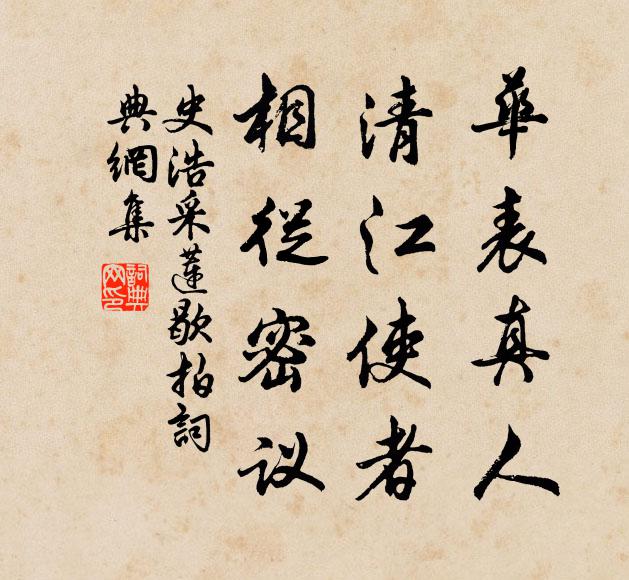 華表真人
清江使者
相從密议
史浩采蓮歇拍詞
典網集
詞典网印